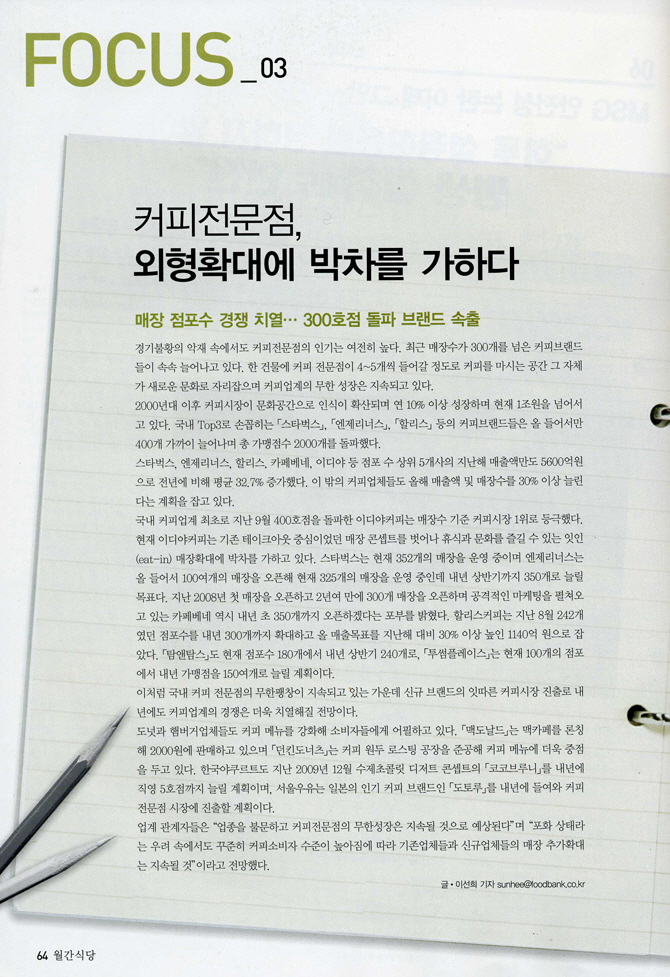 FOCUS_03
커피전문점,
외형확대에 박차를 가하다
매장 점포수 경쟁 치열… 300호점 돌파 브랜드 속출
경기불황의 악재 속에서도 커피전문점의 인기는 여전히 높다. 최근 매장수가 300개를 넘은 커피브랜드
들이 속속 늘어나고 있다. 한 건물에 커피 전문점이 4~5개씩 들어갈 정도로 커피를 마시는 공간 그 자체
가 새로운 문화로 자리잡으며 커피업계의 무한 성장은 지속되고 있다.
2000년대 이후 커피시장이 문화공간으로 인식이 확산되며 연 10% 이상 성장하며 현재 1조원을 넘어서
고 있다. 국내 Top3로 손꼽히는 「스타벅스」, 「엔제리너스」, 「할리스」 등의 커피브랜드들은 올 들어서만
400개 가까이 늘어나며 총 가맹점수 2000개를 돌파했다.
스타벅스, 엔제리너스, 할리스, 카페베네, 이디야 등 점포 수 상위 5개사의 지난해 매출액만도 5600억원
으로 전년에 비해 평균 32.7% 증가했다. 이 밖의 커피업체들도 올해 매출액 및 매장수를 30% 이상 늘린
다는 계획을 잡고 있다.
국내 커피업계 최초로 지난 9월 400호점을 돌파한 이디야커피는 매장수 기준 커피시장 1위로 등극했다.
현재 이디야커피는 기존 테이크아웃 중심이었던 매장 콘셉트를 벗어나 휴식과 문화를 즐길 수 있는 잇인
(eat-in) 매장확대에 박차를 가하고 있다. 스타벅스는 현재 352개의 매장을 운영 중이며 엔제리너스는
올 들어서 100여개의 매장을 오픈해 현재 325개의 매장을 운영 중인데 내년 상반기까지 350개로 늘릴
목표다. 지난 2008년 첫 매장을 오픈하고 2년여 만에 300개 매장을 오픈하며 공격적인 마케팅을 펼쳐오
고 있는 카페베네 역시 내년 초 350개까지 오픈하겠다는 포부를 밝혔다. 할리스커피는 지난 8월 242개
였던 점포수를 내년 300개까지 확대하고 올 매출목표를 지난해 대비 30% 이상 높인 1140억 원으로 잡
았다. 「탐앤탐스」도 현재 점포수 180개에서 내년 상반기 240개로, 「투썸플레이스」는 현재 100개의 점포
에서 내년 가맹점을 150여개로 늘릴 계획이다.
이처럼 국내 커피 전문점의 무한팽창이 지속되고 있는 가운데 신규 브랜드의 잇따른 커피시장 진출로 내
년에도 커피업계의 경쟁은 더욱 치열해질 전망이다.
도넛과 햄버거업체들도 커피 메뉴를 강화해 소비자들에게 어필하고 있다. 「맥도날드」는 맥카페를 론칭
해 2000원에 판매하고 있으며 「던킨도너츠」는 커피 원두 로스팅 공장을 준공해 커피 메뉴에 더욱 중점
을 두고 있다. 한국야쿠르트도 지난 2009년 12월 수제초콜릿 디저트 콘셉트의 「코코브루니」를 내년에
직영 5호점까지 늘릴 계획이며, 서울우유는 일본의 인기 커피 브랜드인 「도토루」를 내년에 들여와 커피
전문점 시장에 진출할 계획이다.
업계 관계자들은 “업종을 불문하고 커피전문점의 무한성장은 지속될 것으로 예상된다”며 “포화 상태라
는 우려 속에서도 꾸준히 커피소비자 수준이 높아짐에 따라 기존업체들과 신규업체들의 매장 추가확대
는 지속될 것”이라고 전망했다.
글 · 이선희 기자 sunhee@foodbank.co.kr
64 월간식당